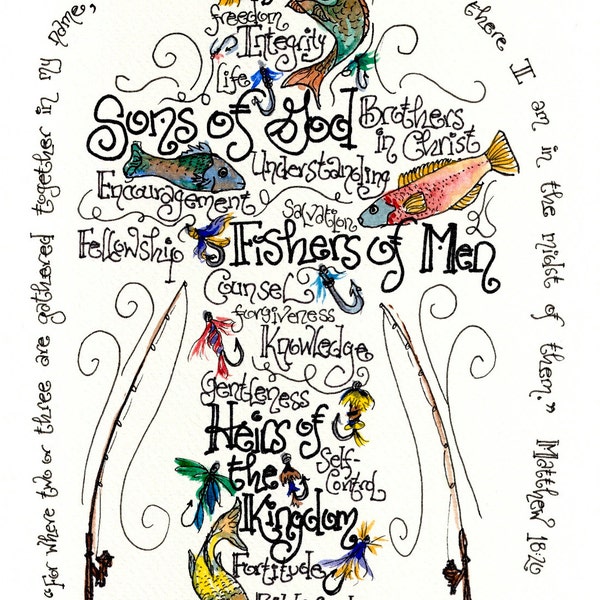 "For where two or three are gathered together in my name,
there I am in the midst of them." Matthew 18:20
freedom
Integrity
Life
Sons of God
Brothers
in Christ
Understanding
Encouragement
Salvation
Fellowship
Fishers of Men
Counsel
forgiveness
Knowledge
gentleness
Heirs of
the
Kingdom
Self-
Control
Fortitude